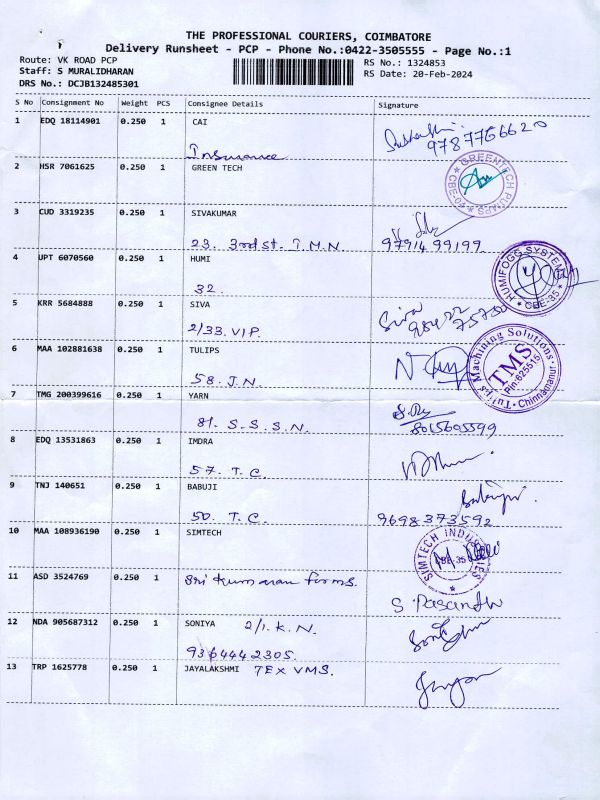 THE PROFESSIONAL COURIERS, COIMBATORE
Delivery Runsheet - PCP - Phone No.:0422-3505555 - Page No.:1
Route: VK ROAD PCP
Staff: S MURALIDHARAN
DRS No.: DCJB132485301
RS No.: 1324853
RS Date: 20-Feb-2024
S No Consignment No Weight PCS Consignee Details Signature
1 EDQ 18114901 0.250 1 CAI
Insurance
9787766620
2 HSR 7061625 0.250 1 GREEN TECH
GREENTECH PUMPS
3 CUD 3319235 0.250 1 SIVAKUMAR
23. 3rd st. T.M.N. 9791499199
4 UPT 6070560 0.250 1 HUMI
32.
HUMIFOGG SYSTEM CBE-35
5 KRR 5684888 0.250 1 SIVA
2/33. V.I.P.
Siva
98422
75750
6 MAA 102881638 0.250 1 TULIPS
58. J.N.
Tulips Machining Solutions
TMS
Pin:625515
Chinnamanur
7 TMG 200399616 0.250 1 YARN
81. S.S.S.N. 8015605599
8 EDQ 13531863 0.250 1 IMDRA
57. T.C.
9 TNJ 140651 0.250 1 BABUJI
Babuji
50. T.C. 9698373592
10 MAA 108936190 0.250 1 SIMTECH
SIMTECH INDUSTRIES
CBE-35
11 ASD 3524769 0.250 1 Sri Kumaran firms.
S. Pasandh
12 NDA 905687312 0.250 1 SONIYA 2/1. K.N.
9364442305.
13 TRP 1625778 0.250 1 JAYALAKSHMI TEX VMS.